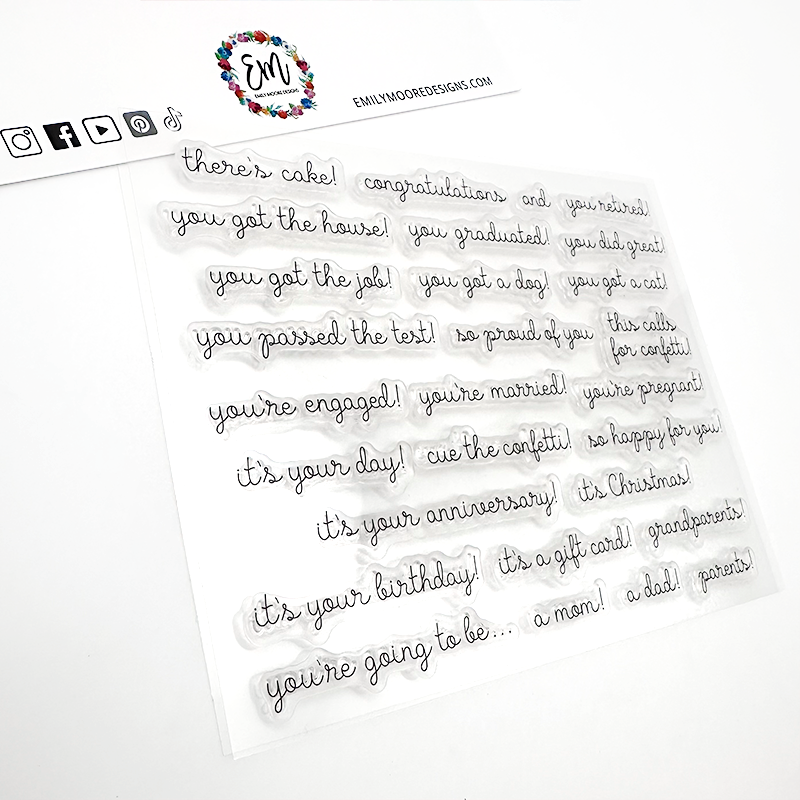 EM
EMILY MOORE DESIGNS
EMILYMOOREDESIGNS.COM
there's cake! congratulations and you retired!
you got the house! you graduated! you did great!
you got the job! you got a dog! you got a cat!
you passed the test! so proud of you this calls
for confetti!
you're engaged! you're married! you're pregnant!
it's your day! cue the confetti! so happy for you!
it's your anniversary! it's Christmas!
it's your birthday! it's a gift card! grandparents!
you're going to be... a mom! a dad! parents!